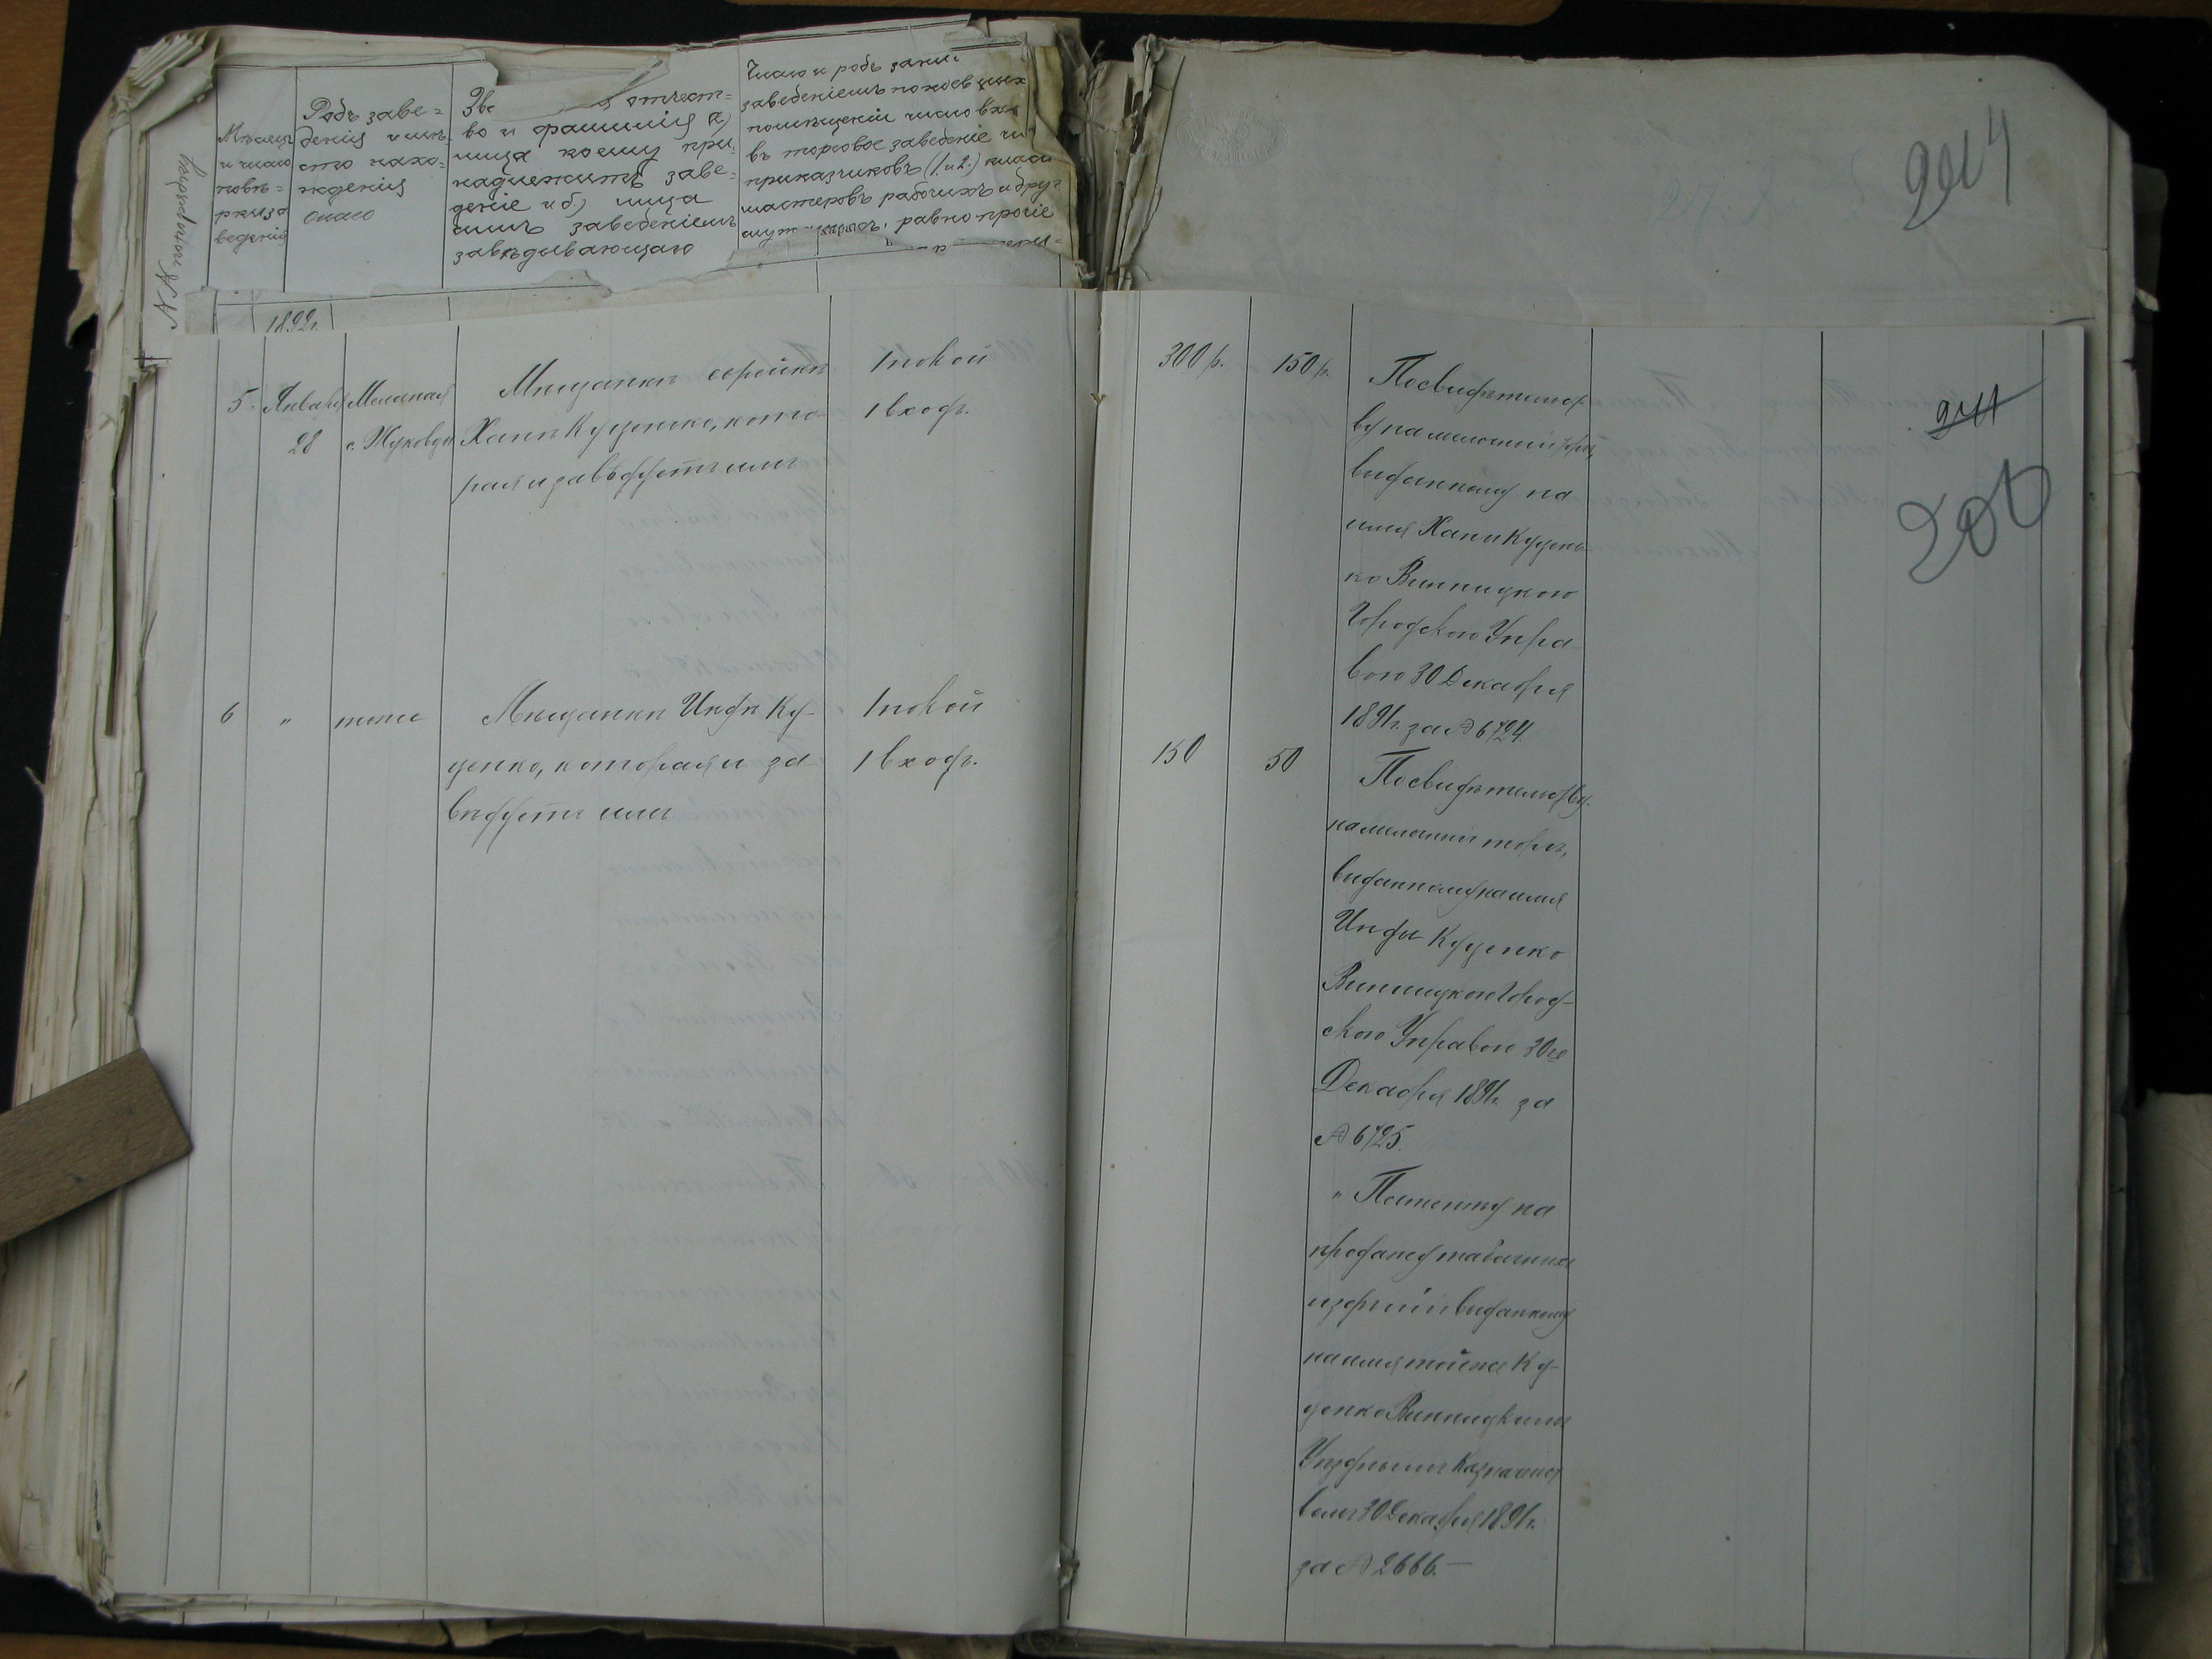 NN по порядку
Мѣсяцъ
и число
повѣ=
рки за
веденія
Родъ заве=
денія и мѣ=
сто нахо=
жденія
онаго
Зва
отчест=
во и фамилія а)
лица коему при
надлежитъ заве=
деніе и б) лица
симъ заведеніемъ
завѣдывающаго
Число и родъ зани
заведеніемъ покоевъ иныхъ
помѣщеній число вхо
въ торговое заведеніе чи
приказчиковъ (1 и 2.) класс
мастеровъ рабочихъ и друг
равно прочіе
1892г.
5. Января
28
Мелочная
с. Жуковцы
Мѣщанки еврейки
Ханы Куценко, кото
рая и завѣдуетъ имъ
1 покой
1 входъ.
300 р.
150 р.
По свидѣтельст
ву на мелочный торгъ,
выданному на
имя Ханы Куцен
ко Винницкою
Городскою Упра
вою 30 Декабря
1891г. за № 6724.
6 " тоже
Мѣщанки Инды Ку-
ценко, которая и за
вѣдуетъ имъ
1 покой
1 входъ.
150
50
По свидѣтельству
на мелочный торгъ,
выданному на имя
Инды Куценко
Винницкою Город-
скою Управою 30го
Декабря 1891г. за
№ 6725.
" Патенту на
продажу табачныхъ
издѣлій выданному
на имя той же Ку-
ценко Винницкимъ
Уѣзднымъ Казначейст
вомъ 30 Декабря 1891г.
за № 2666.—
244
241
200